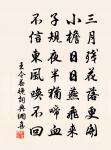 三月殘花落更開
小檐日日燕飛來
子規夜半猶啼血
不信東風喚不回
王令